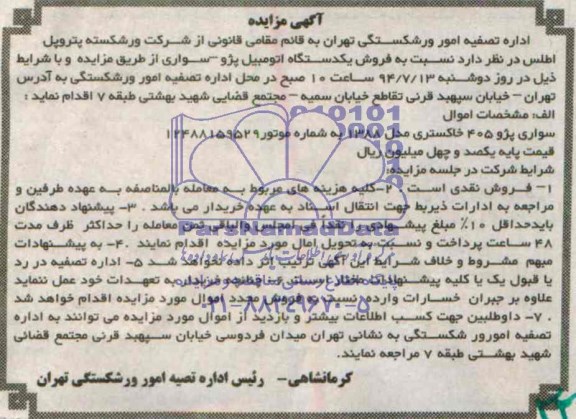 آگهی مزایده
اداره تصفیه امور ورشکستگی تهران به قائم مقامی قانونی از شرکت ورشکسته پتروپل
اطلس در نظر دارد نسبت به فروش یکدستگاه اتومبیل پژو -سواری از طریق مزایده و با شرایط
ذیل در روز دوشنبه ۹۴/۷/۱۳ ساعت ۱۰ صبح در محل اداره تصفیه امور ورشکستگی به آدرس
تهران - خیابان سپهبد قرنی تقاطع خیابان سمیه - مجتمع قضایی شهید بهشتی طبقه ۷ اقدام نماید :
الف: مشخصات اموال
سواری پژو ۴۰۵ خاکستری مدل ۱۳۸۸ به شماره موتور ۱۲۴۸۸۱۵۹۵۲۹
قیمت پایه یکصد و چهل میلیون ریال
شرایط شرکت در جلسه مزایده:
۱- فروش نقدی است . ۲-کلیه هزینه های مربوط به معامله بالمناصفه به عهده طرفین و
مراجعه به ادارات ذیربط جهت انتقال اسناد به عهده خریدار می باشد . ۳- پیشنهاد دهندگان
بایدحداقل ۱۰٪ مبلغ پیشنهادی را نقدا فی المجلس والباقی ثمن معامله را حداکثر ظرف مدت
۴۸ ساعت پرداخت و نسبت به تحویل امال مورد مزایده اقدام نمایند .۴- به پیشنهادات
مبهم مشروط و خلاف شرایط این آگهی ترتیب اثر داده نخواهد شد ۵- اداره تصفیه در رد
یا قبول یک یا کلیه پیشنهادات مختار است به تعهدات خود عمل ننماید
علاوه بر جبران خسارات وارده نسبت به فروش مجدد اموال مورد مزایده اقدام خواهد شد
. ۷- داوطلبین جهت کسب اطلاعات بیشتر و بازدید از اموال مورد مزایده می توانند به اداره
تصفیه امورور شکستگی به نشانی تهران میدان فردوسی خیابان سپهبد قرنی مجتمع قضائی
شهید بهشتی طبقه ۷ مراجعه نمایند.
کرمانشاهی- رئیس اداره تصیه امور ورشکستگی تهران
۰۲۱-۸۸۳۴۹۶۷۰-۵